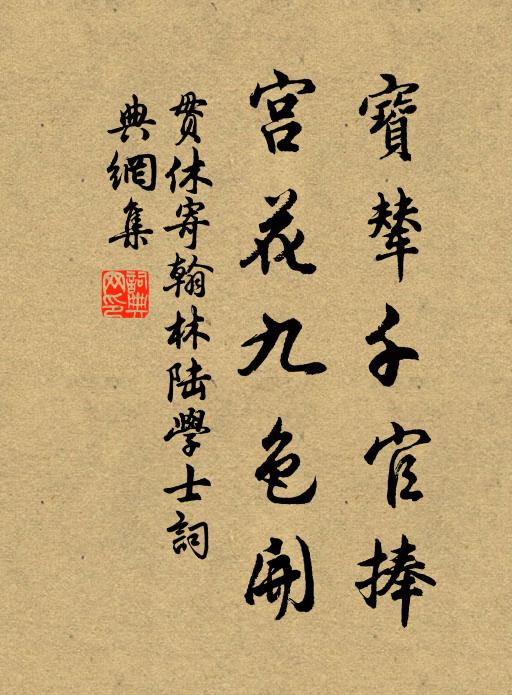 寶輦千官捧
宫花九色開
貫休寄翰林陸學士詞
典網集
詞典網印